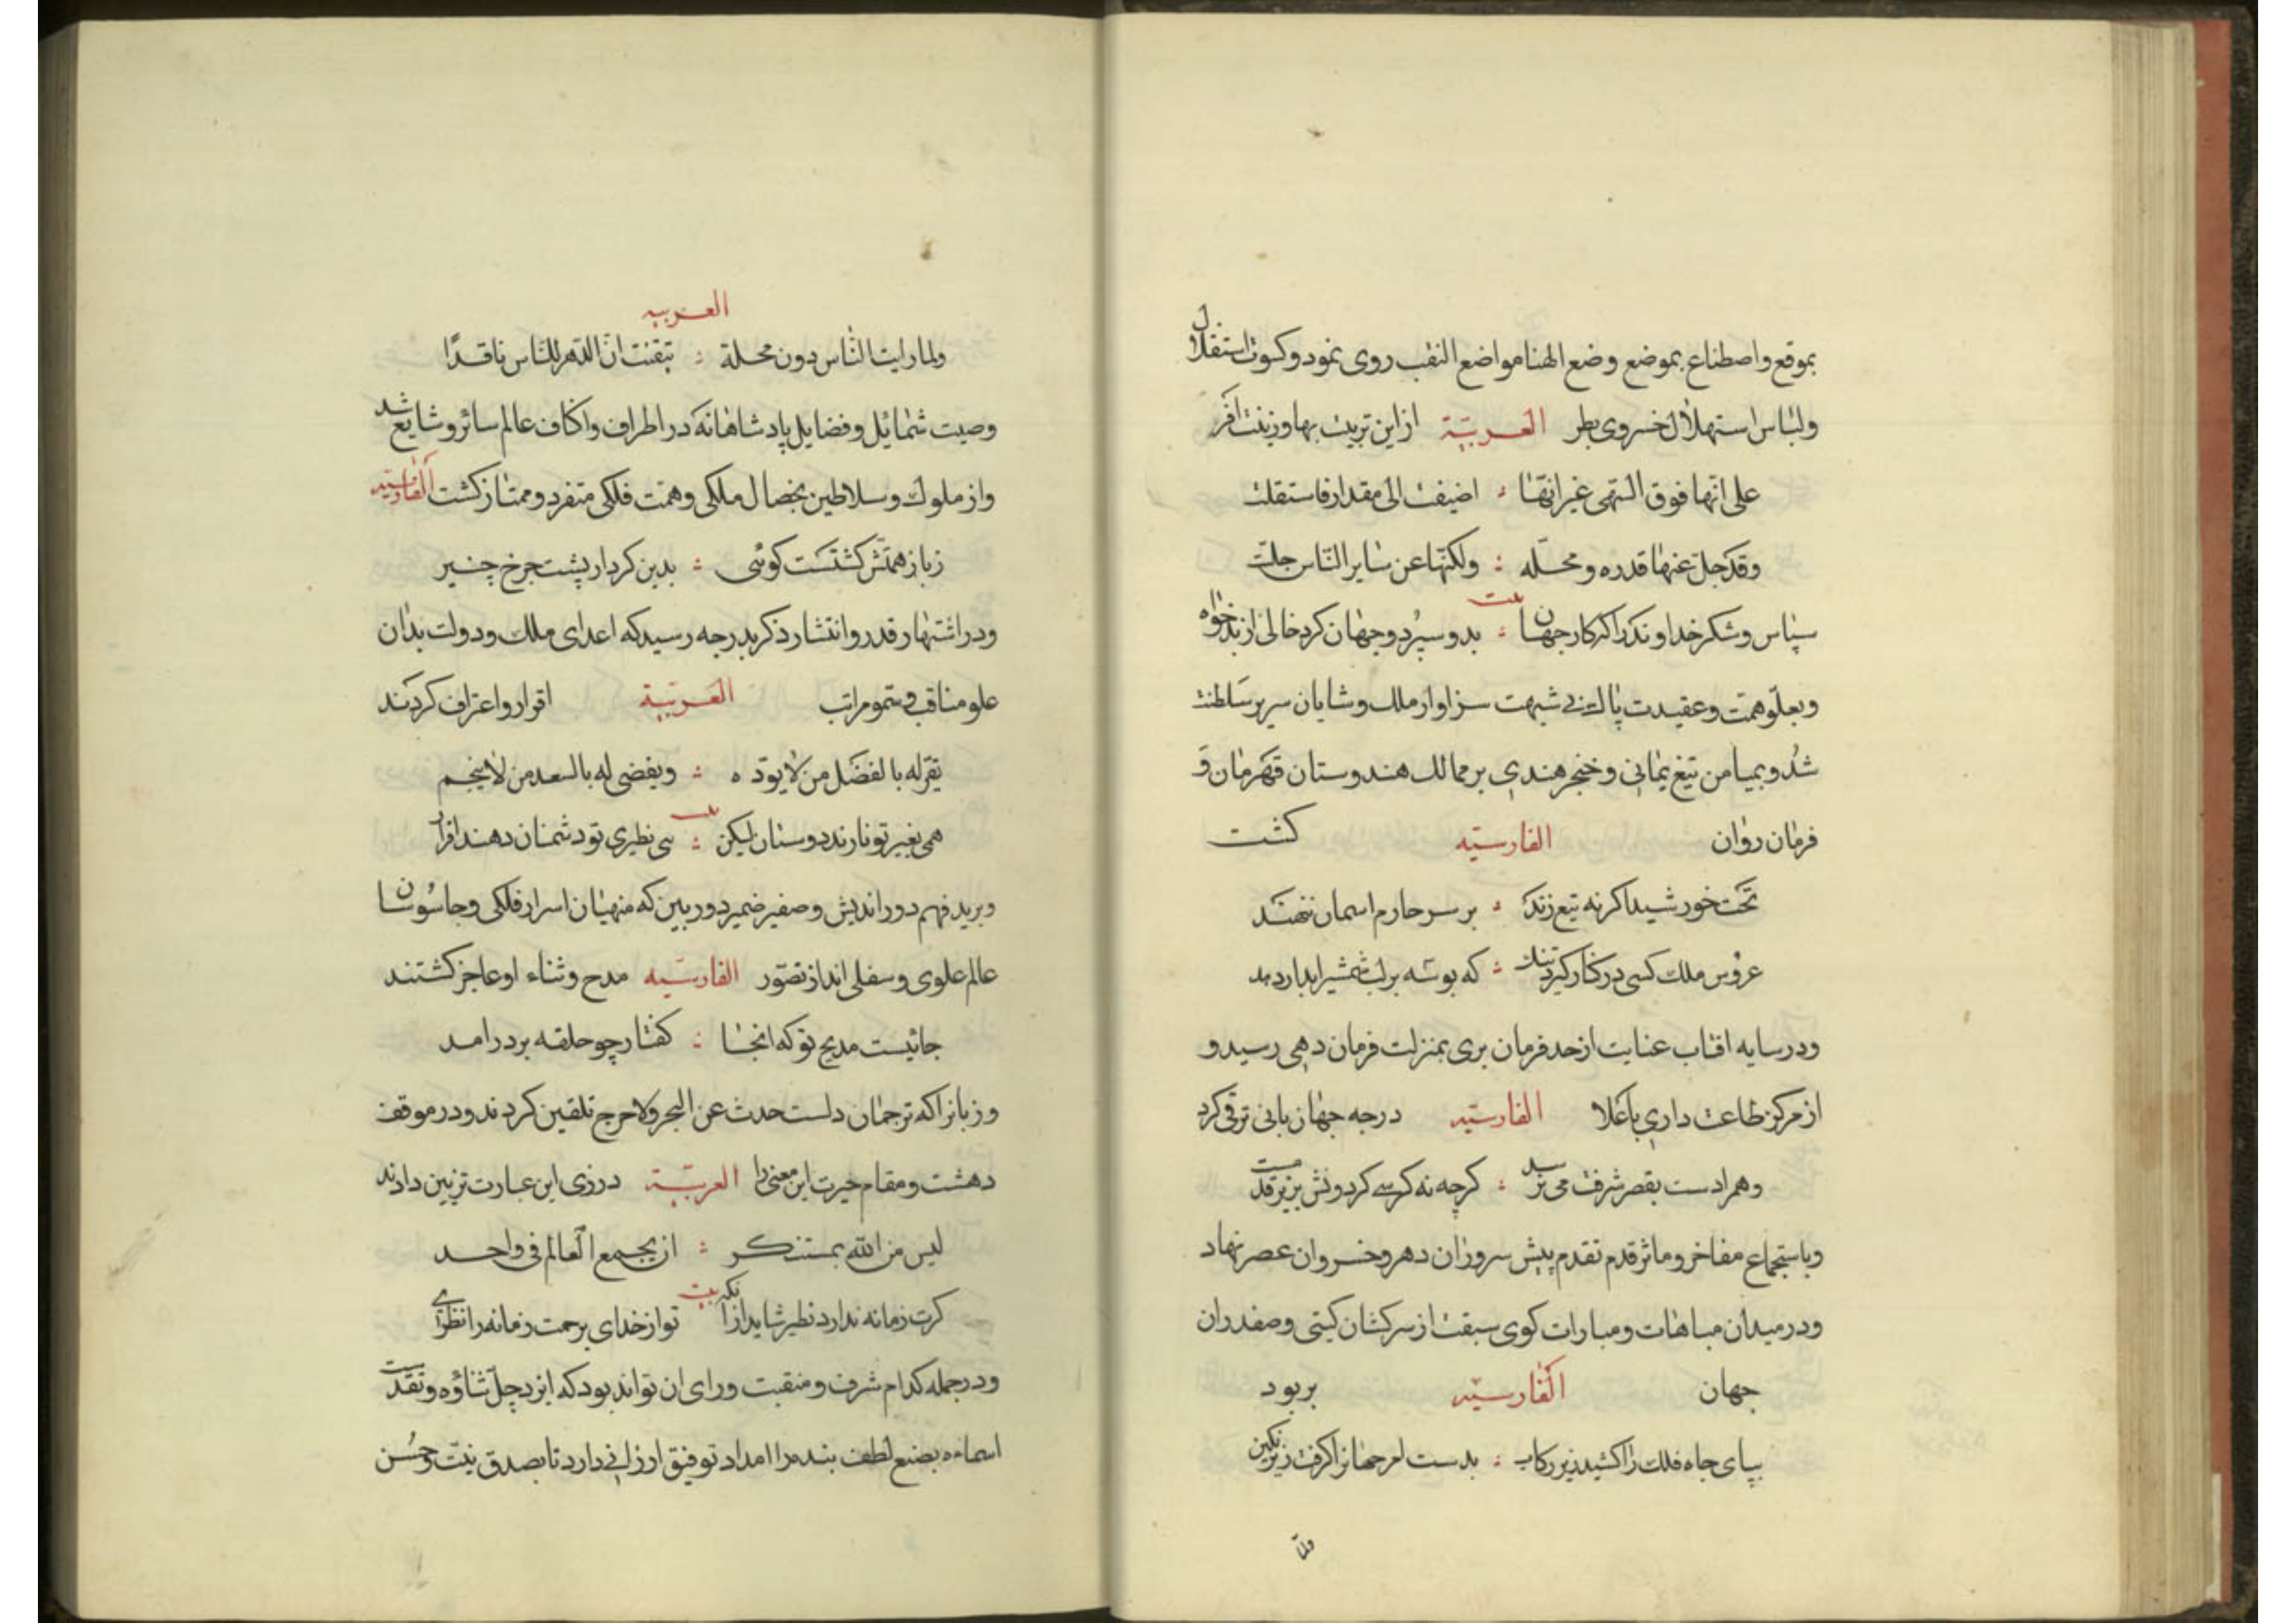 بموقع واصطناع بموضع وضع الهنا مواضع النقب روی نمود و کسوت استقلال
ولباس استهلال خسروی بطر العربیّة ازاین تربیت بها وزینت افر
علی انّها فوق السّهی غیر انّها : اضیفت الی مقداره فاستقلت
وقد جلّ عنها قدره ومحلّه : ولکنّها عن سایر النّاس جلّت
سپاس وشکر خداوند را که کار جهان : بدو سپرد وجهان کرد خالی از بدخواه
بیت
وبعلّو همّت وعقیدت پاک بی شبهت سزاوار ملک وشایان سریر سلطنت
شد وبمیامن تیغ یمانی وخنجر هندی بر ممالک هندوستان قهرمان و
فرمان روان الفارسیّه کشت
تخت خورشید اکر نه تیع زند : بر سر حارم اسمان ننهند
عروس ملک کسی در کنار کیرد تنک : که بوسه بر لب شمشیر ابدار دهد
ودر سایه افتاب عنایت از حد فرمان بری بمنزلت فرمان دهی رسید و
از مرکز طاعت داری باعلا الفارسیّه درجه جهان بانی ترقی کرد
وهم ادست بقصر شرفت می نرسد : کرچه نه کرسی کردونش بزیر قدمست
وباستجماع مفاخر وماثر قدم تقدم پیش سروران دهر وخسروان عصر نهاد
ودر میدان مباهات ومبارات کوی سبقت از سرکشان کیتی وصفدران
جهان الفارسیّه بربود
بپای جاه فلک را کشید زیر رکاب : بدست امر جهانرا کرفت زیر نکین
ولمّا
العربیه
ولما رایت النّاس دون محلة : تیقنت انّ الدّهر للنّاس ناقدًا
وصیت شمائل وفضایل پادشاهانه که در اطراف واکناف عالم سائر وشایع شد
واز ملوک وسلاطین بخصال ملکی وهمّت فلکی متفرد وممتاز کشت الفارسیّه
زبار همتش کشتست کوئی : بدین کردار پشت چرخ چنبر
ودر اشتهار قدر وانتشار ذکر بدرجه رسید که اعدای ملک ودولت بدان
علو مناقب وسمو مراتب العربیّة اقرار واعتراف کردند
یقرّ له بالفضل من لا یودّه : ویقضی له بالسعد من لا ینجم
همی بغیر تو نارند دوستان لیکن : بی نظیری تو دشمنان دهند اقرار
بیت
وبرید فهم دور اندیش وصفیر ضمیر دور بین که منهیان اسرار فلکی وجاسوسان
عالم علوی وسفلی اند از تصوّر الفارسیّه مدح وثناء او عاجز کشتند
جائیست مدیح تو که انجا : کفتار چو حلقه بر در امد
وزبانرا که ترجمان دلست حدث عن البحر ولا حرج تلقین کردند ودر موقف
دهشت ومقام حیرت این معنی را العربیّة در زی این عبارت تزیین دادند
لیس من الله بمستنکر : ان یجمع العالم فی واحد
کرت زمانه ندارد نظیر شاید ازانکه توا ز خدای برحمت زمانه را نظری
بیت
ودر جمله کدام شرف ومنقبت ورای ان تواند بود که ایزد جلّ ثناؤه وتقدست
اسماءه بصنع لطف بنده را امداد توفیق ارزانی دارد تا بصدق نیّت وحسن